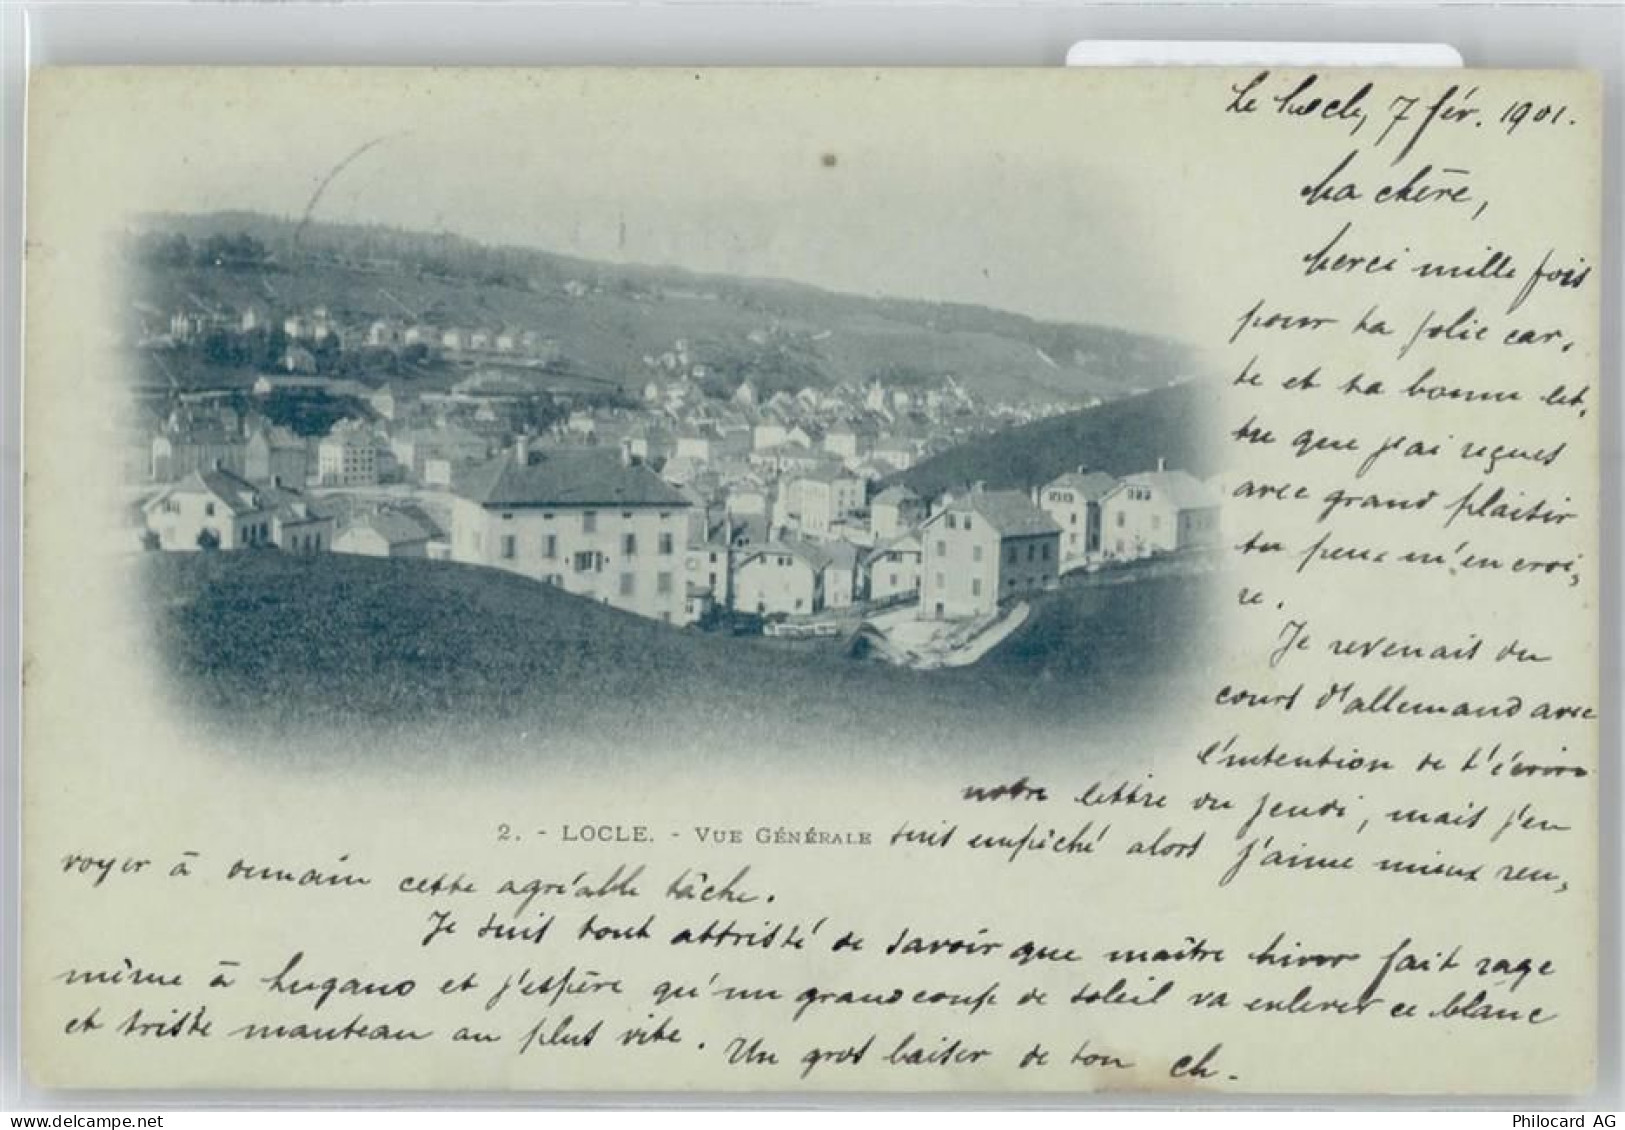 Le Locle, 7 fév. 1901.
Ma chère,
Merci mille fois
pour ta jolie car-
te et ta bonne let-
tre que j'ai reçues
avec grand plaisir
tu peux m'en croi-
re.
Je revenais du
cours d'allemand avec
l'intention de t'écrire
notre lettre du jeudi, mais j'en
2. - LOCLE. - VUE GÉNÉRALE
suis empêché alors j'aime mieux ren-
voyer à demain cette agréable tâche.
Je suis tout attristé de savoir que maître hiver fait rage
même à Lugano et j'espère qu'un grand coup de soleil va enlever ce blanc
et triste manteau au plus vite. Un gros baiser de ton Ch.
Philocard AG